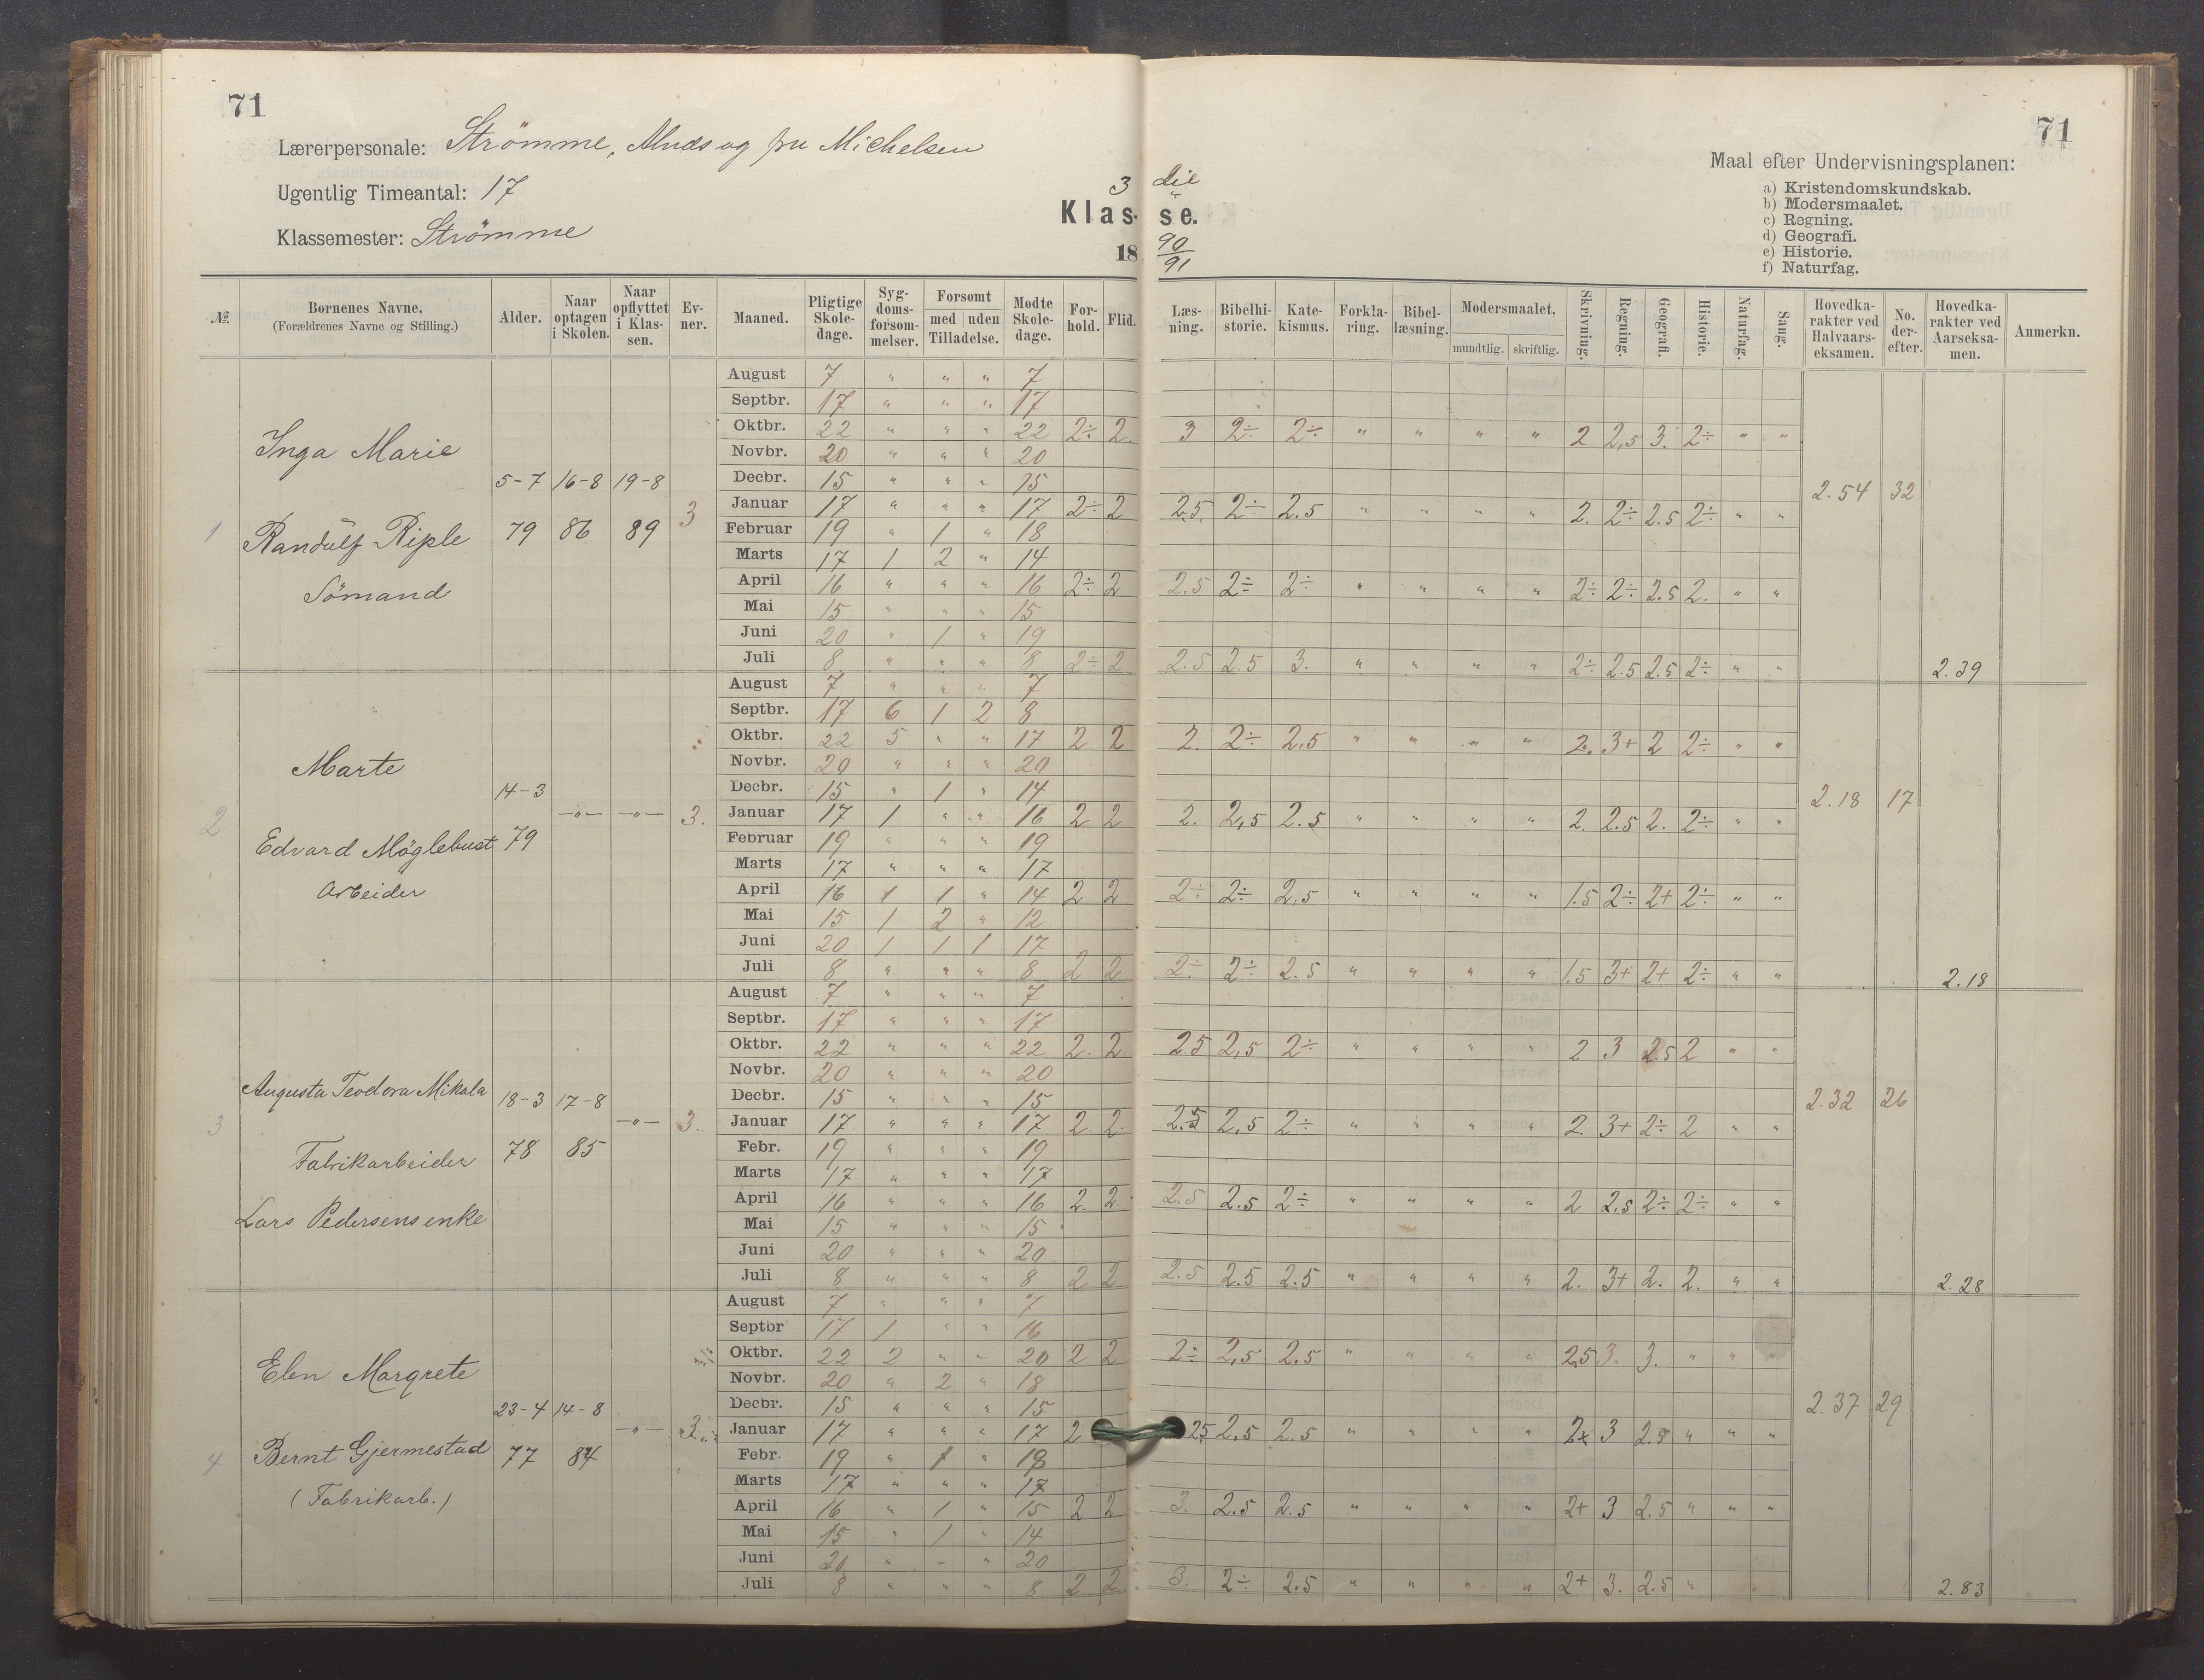 71
Lærerpersonale: Strömme, Munds og fru Michelsen
Ugentlig Timeantal: 17
Klassemester: Strömme
3 die
Klas- se.
18 90/91
71
Maal efter Undervisningsplanen:
a) Kristendomskundskab.
b) Modersmaalet.
c) Regning.
d) Geografi.
e) Historie.
f) Naturfag.
№ | Børnenes Navne. (Forældrenes Navne og Stilling.) | Alder. | Naar optagen i Skolen. | Naar opflyttet i Klassen. | Evner. | Maaned. | Pligtige Skoledage. | Sygdomsforsømmelser. | Forsømt med uden Tilladelse. | Mødte Skoledage. | Forhold. | Flid. | Læsning. | Bibelhistorie. | Katekismus. | Forklaring. | Bibellæsning. | Modersmaalet, mundtlig. skriftlig. | Skrivning. | Regning. | Geografi. | Historie. | Naturfag. | Sang. | Hovedkarakter ved Halvaarseksamen. | No. derefter. | Hovedkarakter ved Aarseksamen. | Anmerkn.
1 Inga Marie
Randulf Riple
Sömand
5-7 79 | 16-8 86 | 19-8 89 | 3
August 7 " " " 7
Septbr. 17 " " " 17
Oktbr. 22 " " " 22 2÷ 2. 3 2÷ 2÷ " " " " 2 2,5 3. 2÷ " "
Novbr. 20 " " " 20
Decbr. 15 " " " 15
Januar 17 " " " 17 2÷ 2 2.5. 2÷ 2.5 " " " " 2. 2÷ 2.5 2÷ " "
2.54 32
Februar 19 " 1 " 18
Marts 17 1 2 " 14
April 16 " " " 16 2÷ 2 2.5 2÷ 2÷ " " " " 2÷ 2÷ 2.5 2. " "
Mai 15 " " " 15
Juni 20 " 1 " 19
Juli 8 " " " 8 2÷ 2 2.5 2.5 3. " " " " 2÷ 2.5 2.5 2÷ " " 2.39
2 Marte
Edvard Möglebust
Arbeider
14-3 79 | -"- | -"- | 3.
August 7 " " " 7
Septbr. 17 6 1 2 8
Oktbr. 22 5 " " 17 2 2 2. 2÷ 2,5 " " " " 2. 3+ 2 2÷ " "
Novbr. 20 " " " 20
Decbr. 15 " 1 " 14
Januar 17 1 " " 16 2 2 2. 2,5 2.5 " " " " 2. 2.5 2. 2÷ " "
2.18 17
Februar 19 " " " 19
Marts 17 " " " 17
April 16 1 1 " 14 2 2 2÷ 2÷ 2,5 " " " " 1.5 2÷ 2+ 2÷ " "
Mai 15 1 2 " 12
Juni 20 1 1 1 17
Juli 8 " " " 8 2 2 2÷ 2÷ 2.5 " " " " 1.5 3+ 2+ 2÷ " " 2.18
3 Augusta Teodora Mikala
Fabrikarbeider
Lars Pedersens enke
18-3 78 | 17-8 85 | -"- | 3.
August 7 " " " 7
Septbr. 17 " " " 17
Oktbr. 22 " " " 22 2. 2 2.5 2,5 2÷ " " " " 2 3 2.5 2 " "
Novbr. 20 " " " 20
Decbr. 15 " " " 15
2.32 26
Januar 17 " " " 17 2 2. 2.5 2,5 2÷ " " " " 2. 3+ 2÷ 2 " "
Febr. 19 " " " 19
Marts 17 " " " 17
April 16 " " " 16 2. 2 2.5 2.5 2÷ " " " " 2 2,5 2÷ 2÷ " "
Mai 15 " " " 15
Juni 20 " " " 20
Juli 8 " " " 8 2 2 2.5 2.5 2.5 " " " " 2. 3+ 2. 2. " " 2.28
4 Elen Margrete
Bernt Gjermestad
(Fabrikarb.)
23-4 77 | 14-8 84 | -"- | 3.
August 7 " " " 7
Septbr 17 1 " " 16
Oktbr. 22 2 " " 20 2 2 2÷ 2,5 2.5 " " " " 2,5 3. 3. " " "
Novbr. 20 " 2 " 18
Decbr. 15 " " " 15
2.37 29
Januar 17 " " " 17 2 25 2,5 2.5 " " " " 2+ 3 2.5 " " "
Febr. 19 " 1 " 18
Marts 17 " " " 17
April 16 " 1 " 15 2 2 3. 2.5 2.5 " " " " 2+ 3 2.5 " " "
Mai 15 " 1 " 14
Juni 20 " " " 20
Juli 8 " " " 8 2 2 3. 2÷ 2.5 " " " " 2+ 3. 2.5 " 2.83